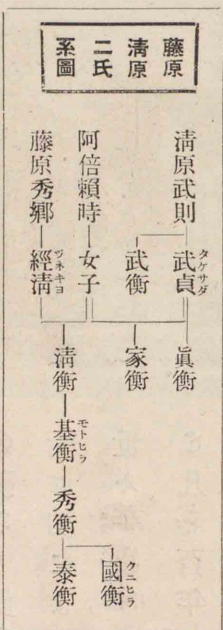 藤原
清原
二氏
系圖
清原武則
武貞
タケサダ
眞衡
武衡
家衡
阿倍賴時
女子
藤原秀鄕
經清
ヅネキヨ
清衡
基衡
モトヒラ
秀衡
國衡
クニヒラ
泰衡